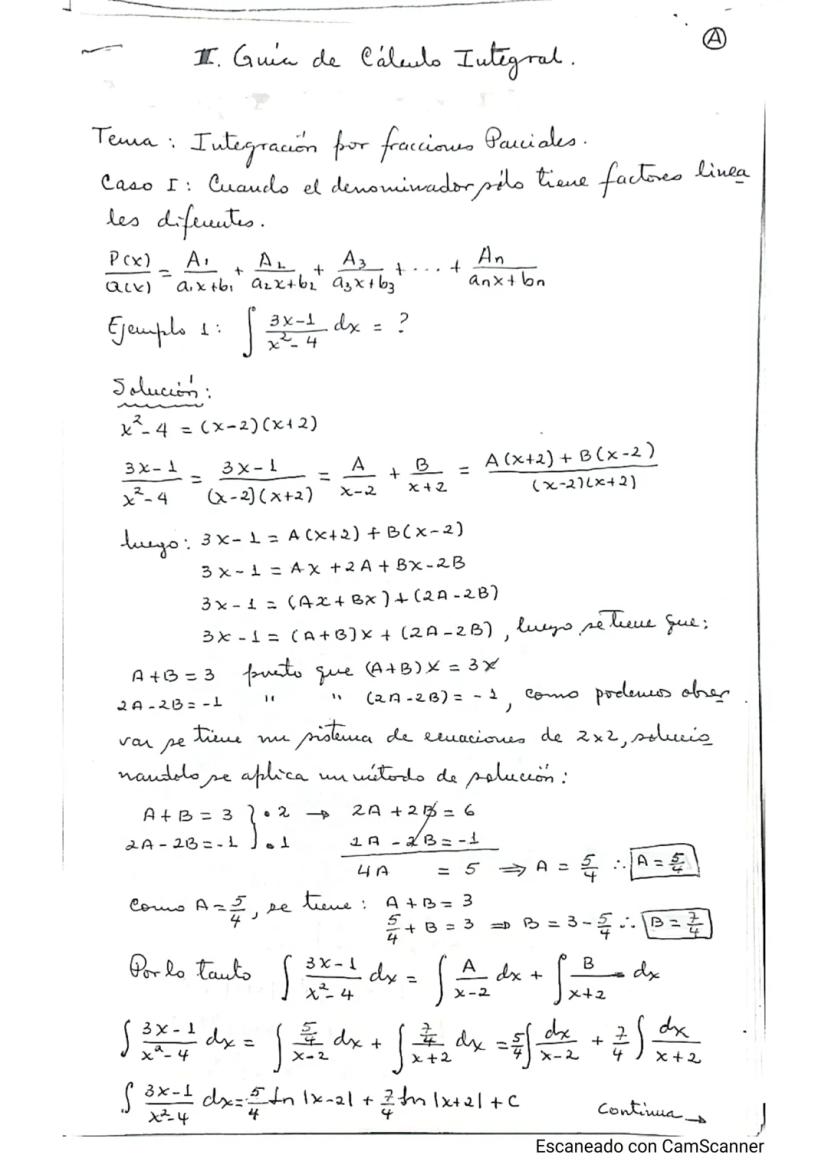 Ⓐ
II. Guía de Cálculo Integral.
Tema: Integración por fracciones Parciales.
Caso I: Cuando el denominador sólo tiene factores linea
les difeentes.
P(x)/Q(x) = A₁/(a₁x+b₁) + A₂/(a₂x+b₂) + A₃/(a₃x+b₃) + ... + An/(anx+bn)
Ejemplo 1: ∫ (3x-1)/(x²-4) dx = ?
Solución:
x²-4 = (x-2)(x+2)
(3x-1)/(x²-4) = (3x-1)/((x-2)(x+2)) = A/(x-2) + B/(x+2) = (A(x+2) + B(x-2))/((x-2)(x+2))
luego: 3x-1 = A(x+2) + B(x-2)
3x-1 = Ax + 2A + Bx - 2B
3x-1 = (Ax + Bx) + (2A-2B)
3x-1 = (A+B)x + (2A-2B), luego se tiene que:
A+B = 3 puesto que (A+B)x = 3x
2A-2B = -1 " " (2A-2B) = -1, como podemos obser
var se tiene un sistema de ecuaciones de 2x2, solucio
nandolo se aplica un método de solución:
A+B = 3 } • 2 → 2A + 2B = 6
2A-2B = -1 } • 1 2A - 2B = -1
4A = 5 ⇒ A = 5/4 ∴ A = 5/4
Como A = 5/4, se tiene: A+B = 3
5/4 + B = 3 ⇒ B = 3 - 5/4 ∴ B = 7/4
Por lo tanto ∫ (3x-1)/(x²-4) dx = ∫ A/(x-2) dx + ∫ B/(x+2) dx
∫ (3x-1)/(x²-4) dx = ∫ (5/4)/(x-2) dx + ∫ (7/4)/(x+2) dx = 5/4 ∫ dx/(x-2) + 7/4 ∫ dx/(x+2)
∫ (3x-1)/(x²-4) dx = 5/4 Ln |x-2| + 7/4 Ln |x+2| + C
Continua →
Escaneado con CamScanner